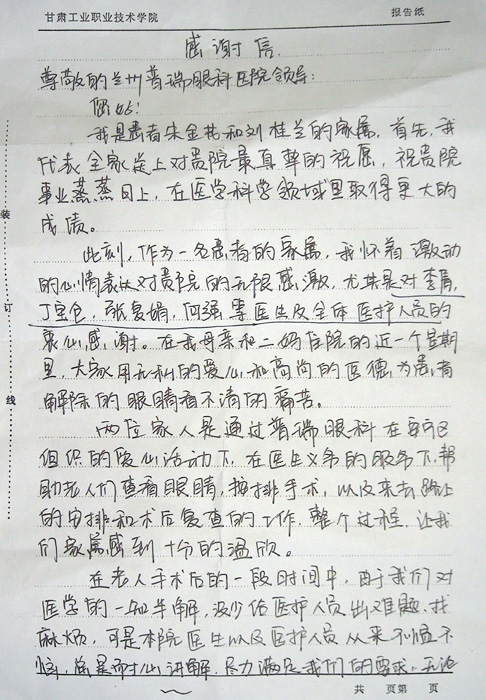 甘肃工业职业技术学院 报告纸
感谢信
尊敬的兰州普瑞眼科医院领导:
你好!
我是患者朱金花和刘桂兰的家属, 首先, 我
代表全家送上对贵院最真挚的祝愿, 祝贵院
事业蒸蒸日上, 在医学科学领域里取得更大的
成绩。
此刻, 作为一名患者的家属, 我怀着激动
的心情表达对贵院的无限感激, 尤其是对李青,
丁宝仓, 张复娟, 何强等医生及全体医护人员的
衷心感谢。在我母亲和二妈住院的近一个星期
里, 大家用无私的爱心和高尚的医德, 为患者
解除的眼睛看不清的痛苦。
两位家人是通过普瑞眼科在
组织的爱心活动下, 在医生义务的服务下, 帮
助老人们查看眼睛, 按排手术, 以及来去路上
的安排和术后复查的工作, 整个过程, 让我
们家属感到十分的温欣。
在老人手术后的一段时间中, 由于我们对
医学的一知半解, 没少给医护人员出难题, 找
麻烦, 可是本院医生以及医护人员从来不愠不
恼, 总是耐心讲解, 尽力满足我们的要求, 无论
共 页第 页
装
订
线